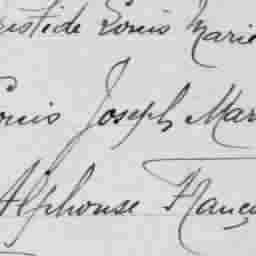 ristide Louis Marie
ouis Joseph Mar
Alphonse Franço